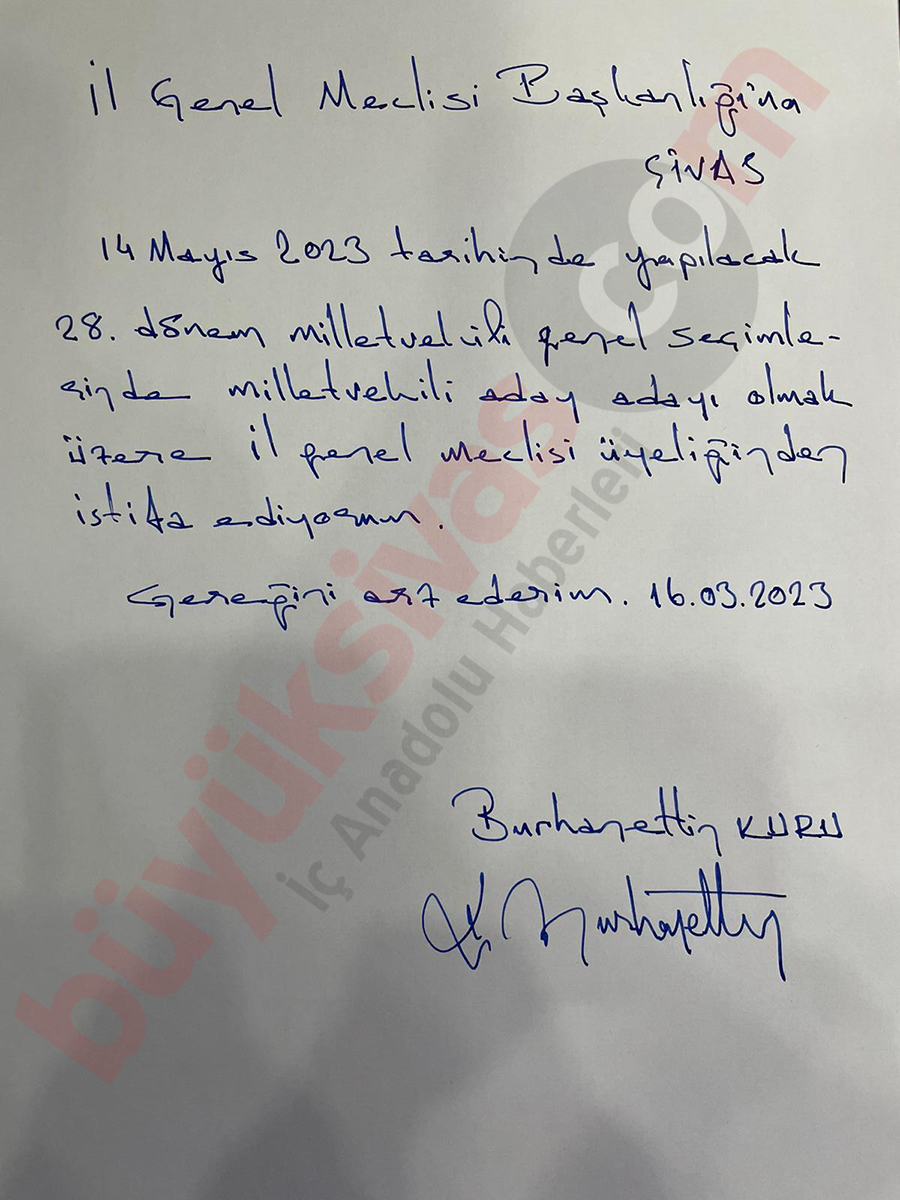 İl Genel Meclisi Başkanlığı'na
SİVAS
14 Mayıs 2023 tarihinde yapılacak
28. dönem milletvekili genel seçimle-
rinde milletvekili aday adayı olmak
üzere il genel meclisi üyeliğinden
istifa ediyorum.
Gereğini arz ederim. 16.03.2023
Burhanettin KURU
K. Burhanettin
büyüksivas.com
İç Anadolu Haberleri